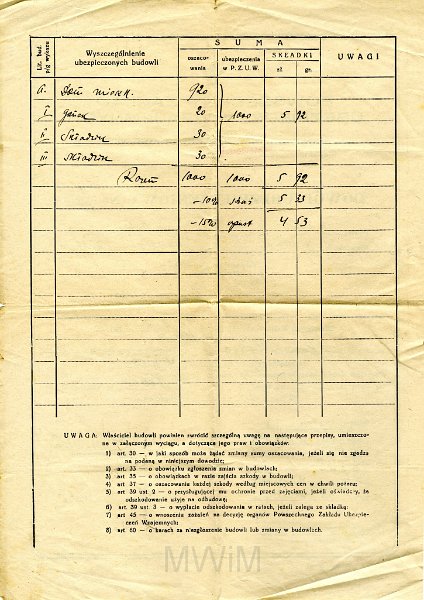 Lit. bud. p/g wykazu
Wyszczególnienie ubezpieczonych budowli
SUMA
oszacowania
ubezpieczenia w P.Z.U.W.
SKŁADKI
zł
gr.
UWAGI
a. Dom mieszk. 920
I 20 1000 5 92
II Składzik 30
III Składzik 30
Razem 1000 1000 5 92
-10% 5 33
-15% opust 4 53
UWAGA: Właściciel budowli powinien zwrócić szczególną uwagę na następujące przepisy, umieszczo-
ne w załączonym wyciągu, a dotyczące jego praw i obowiązków:
1) art. 30 — w jaki sposób może żądać zmiany sumy oszacowania, jeżeli się nie zgadza
na podaną w niniejszym dowodzie;
2) art. 33 — o obowiązku zgłoszenia zmian w budowlach;
3) art. 35 — o obowiązkach w razie zajścia szkody w budowli;
4) art. 37 — o oszacowaniu każdej szkody według miejscowych cen w chwili pożaru;
5) art. 39 ust 2 — o przysługującej mu ochronie przed zajęciami, jeżeli oświadczy, że
odszkodowanie użyje na odbudowę;
6) art. 39 ust 3 — o wypłacie odszkodowania w ratach, jeżeli zalega ze składką;
7) art. 45 — o wnoszeniu zażaleń na decyzję organów Powszechnego Zakładu Ubezpie-
czeń Wzajemnych;
8) art. 60 — o karach za niezgłoszenie budowli lub zmiany w budowlach.
MWiM